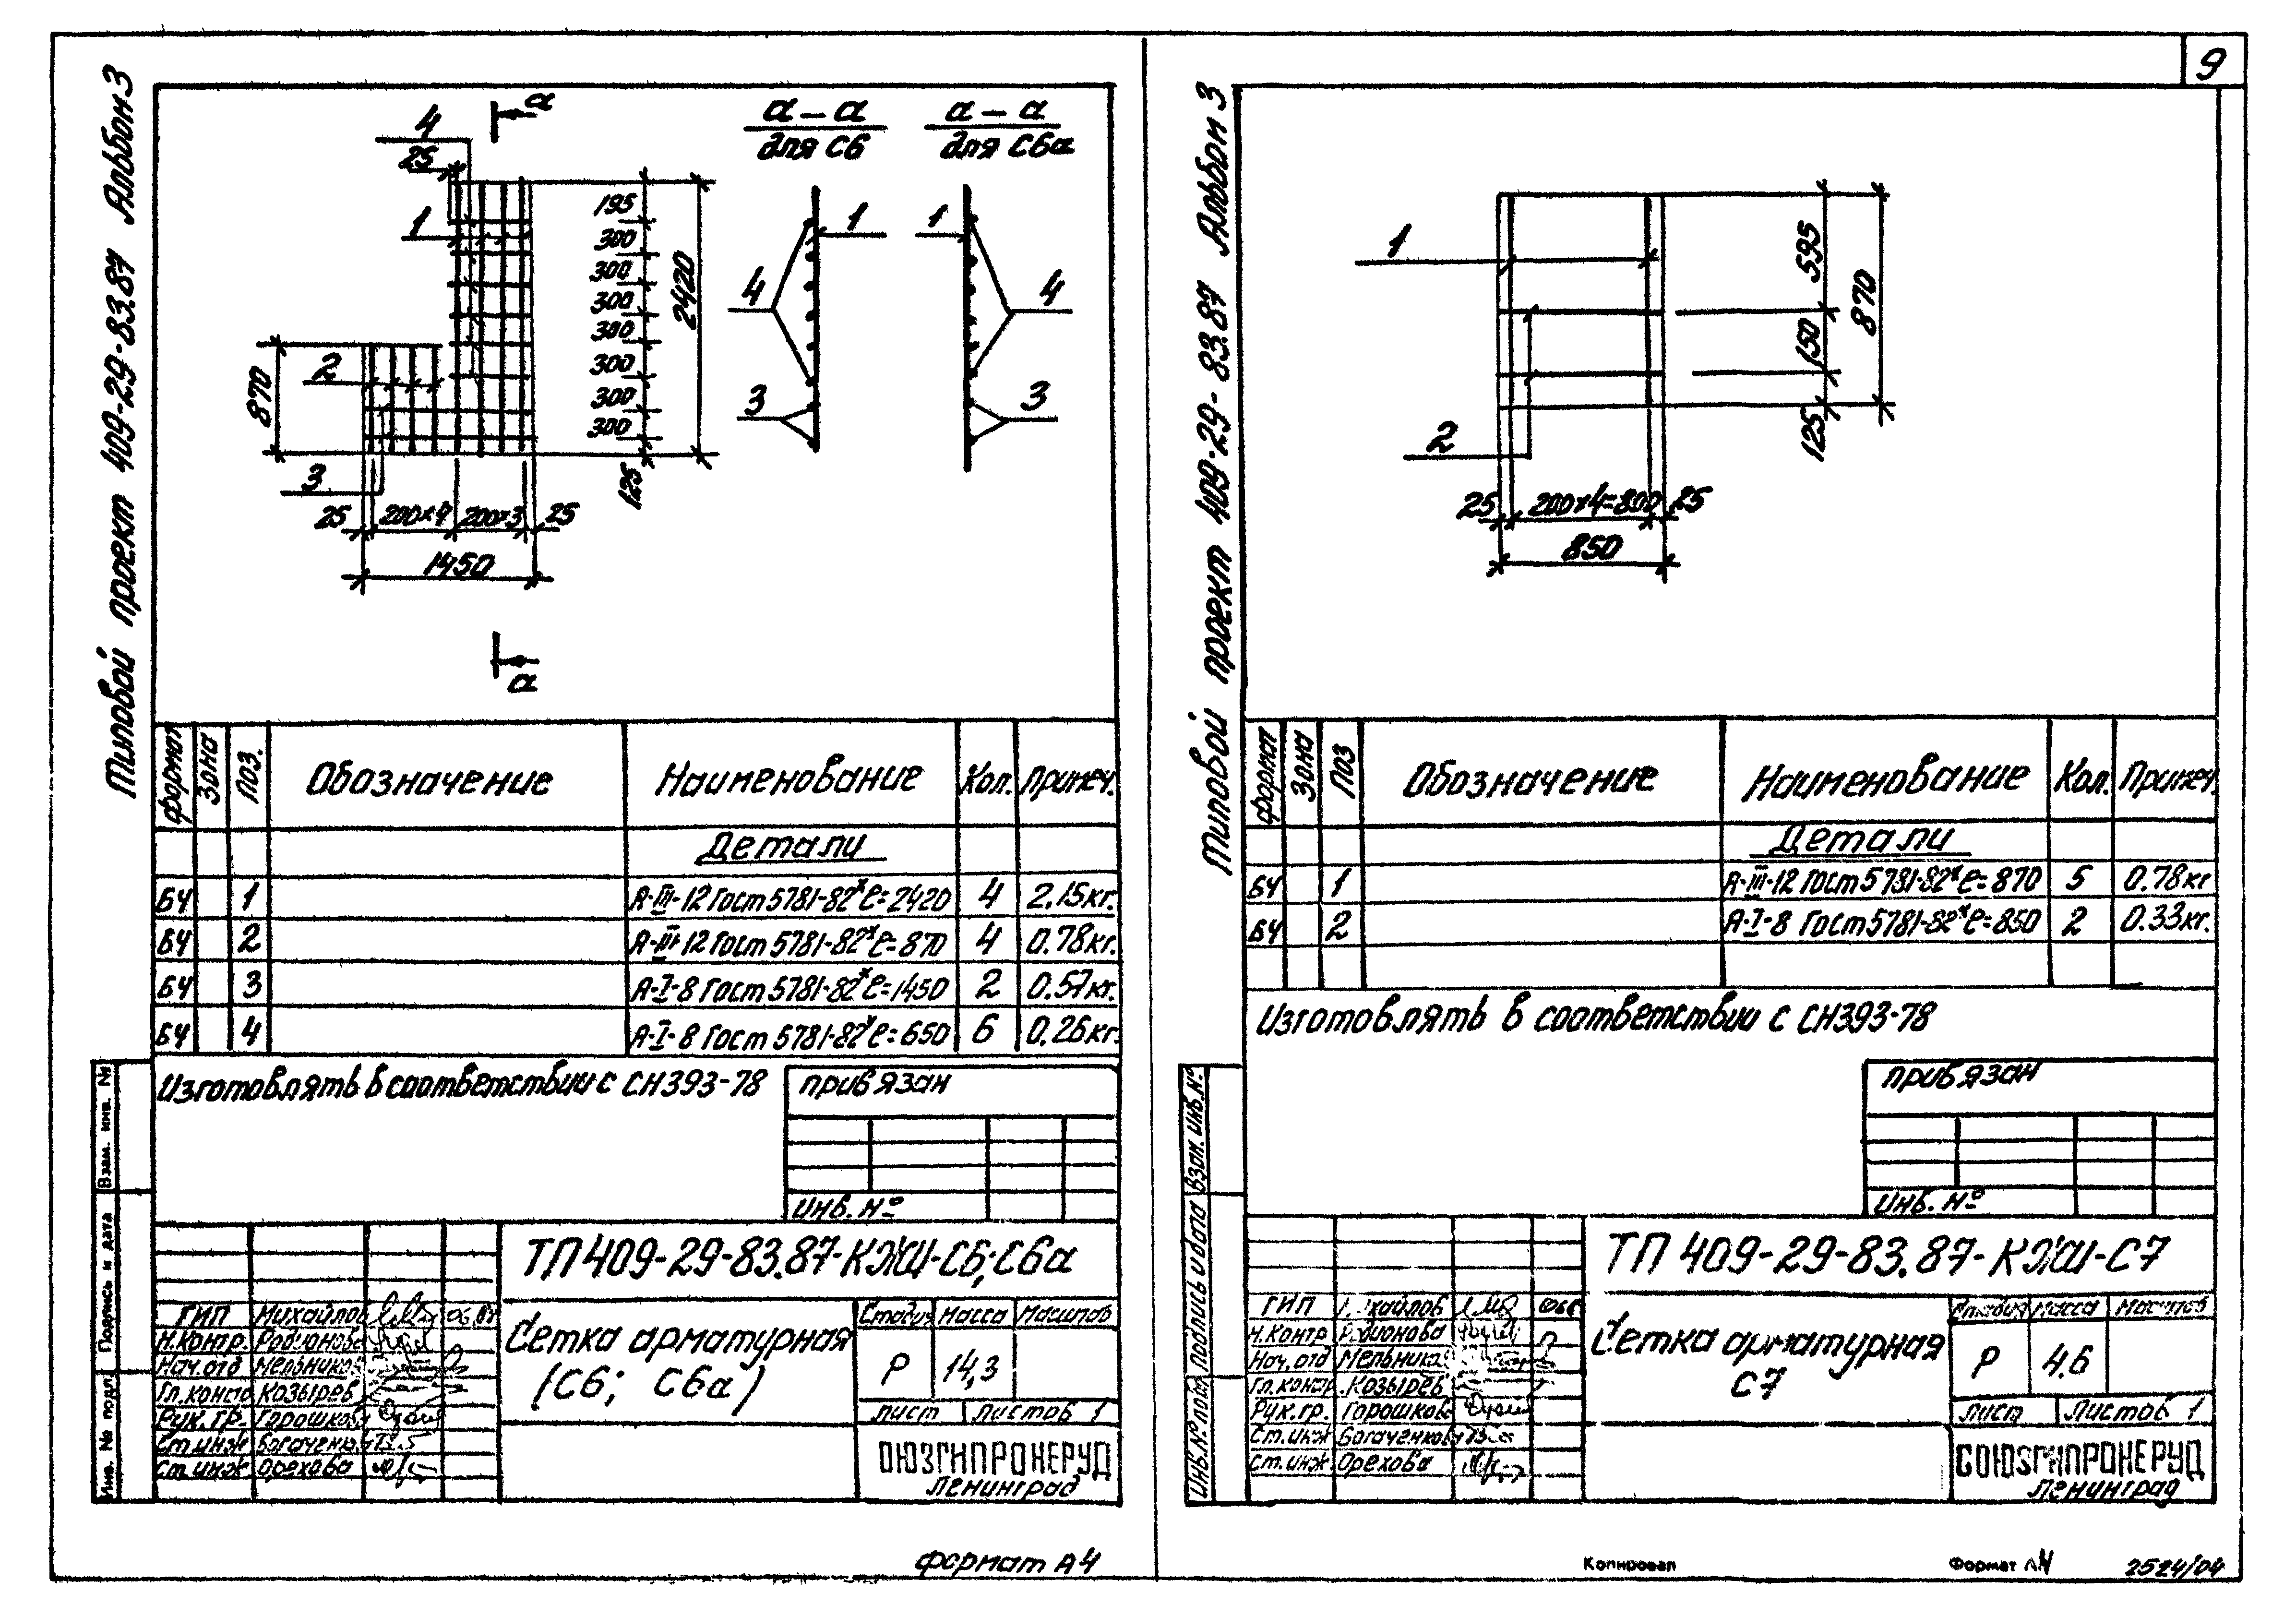 9
Типовой проект 409-29-83.87 Альбом 3
а
4
25
1
195
300
300
300
300
300
300
300
125
2420
870
2
3
25 200х4 200х3 25
1450
а
а – а
для С6
1
4
3
а – а
для С6а
1
4
3
Формат Зона Поз. Обозначение Наименование Кол. Примеч.
Детали
БЧ 1 А-III-12 Гост 5781-82* ℓ=2420 4 2.15кг.
БЧ 2 А-III-12 Гост 5781-82* ℓ=870 4 0.78кг.
БЧ 3 А-I-8 Гост 5781-82* ℓ=1450 2 0.57кг.
БЧ 4 А-I-8 Гост 5781-82* ℓ=650 6 0.26кг.
Изготовлять в соответствии с СН393-78
привязан
Инв. №
Взам. инв. №
Подпись и дата
Инв. № подл.
ТП 409-29-83.87-КЖИ-С6; С6а
ГИП Михайлов 06.87
Н.контр. Родионова
Нач.отд Мельников
Гл.констр Козырев
Рук.гр. Горошков
Ст.инж Богаченков
Ст.инж Орехова
Сетка арматурная
(С6; С6а)
Стадия Масса Масштаб
Р 14,3
Лист Листов 1
ОЮЗГИПРОНЕРУД
Ленинград
Формат А4
Типовой проект 409-29-83.87 Альбом 3
1
2
595
150
125
870
25 200х4=800 25
850
Формат Зона Поз Обозначение Наименование Кол. Примеч.
Детали
БЧ 1 А-III-12 Гост 5781-82* ℓ=870 5 0.78кг
БЧ 2 А-I-8 Гост 5781-82* ℓ=850 2 0.33кг.
Изготовлять в соответствии с СН393-78
привязан
Инв. №
Взам. инв. №
Подпись и дата
Инв. № подл
ТП 409-29-83.87-КЖИ-С7
ГИП Михайлов
Н.контр Родионова
Нач.отд Мельников
Гл.контр. Козырев
Рук.гр. Горошков
Ст.инж Богаченков
Ст.инж. Орехова
Сетка арматурная
С7
Стадия Масса Масштаб
Р 4.6
Лист Листов 1
СОЮЗГИПРОНЕРУД
Ленинград
Копировал
Формат А4
2524/04